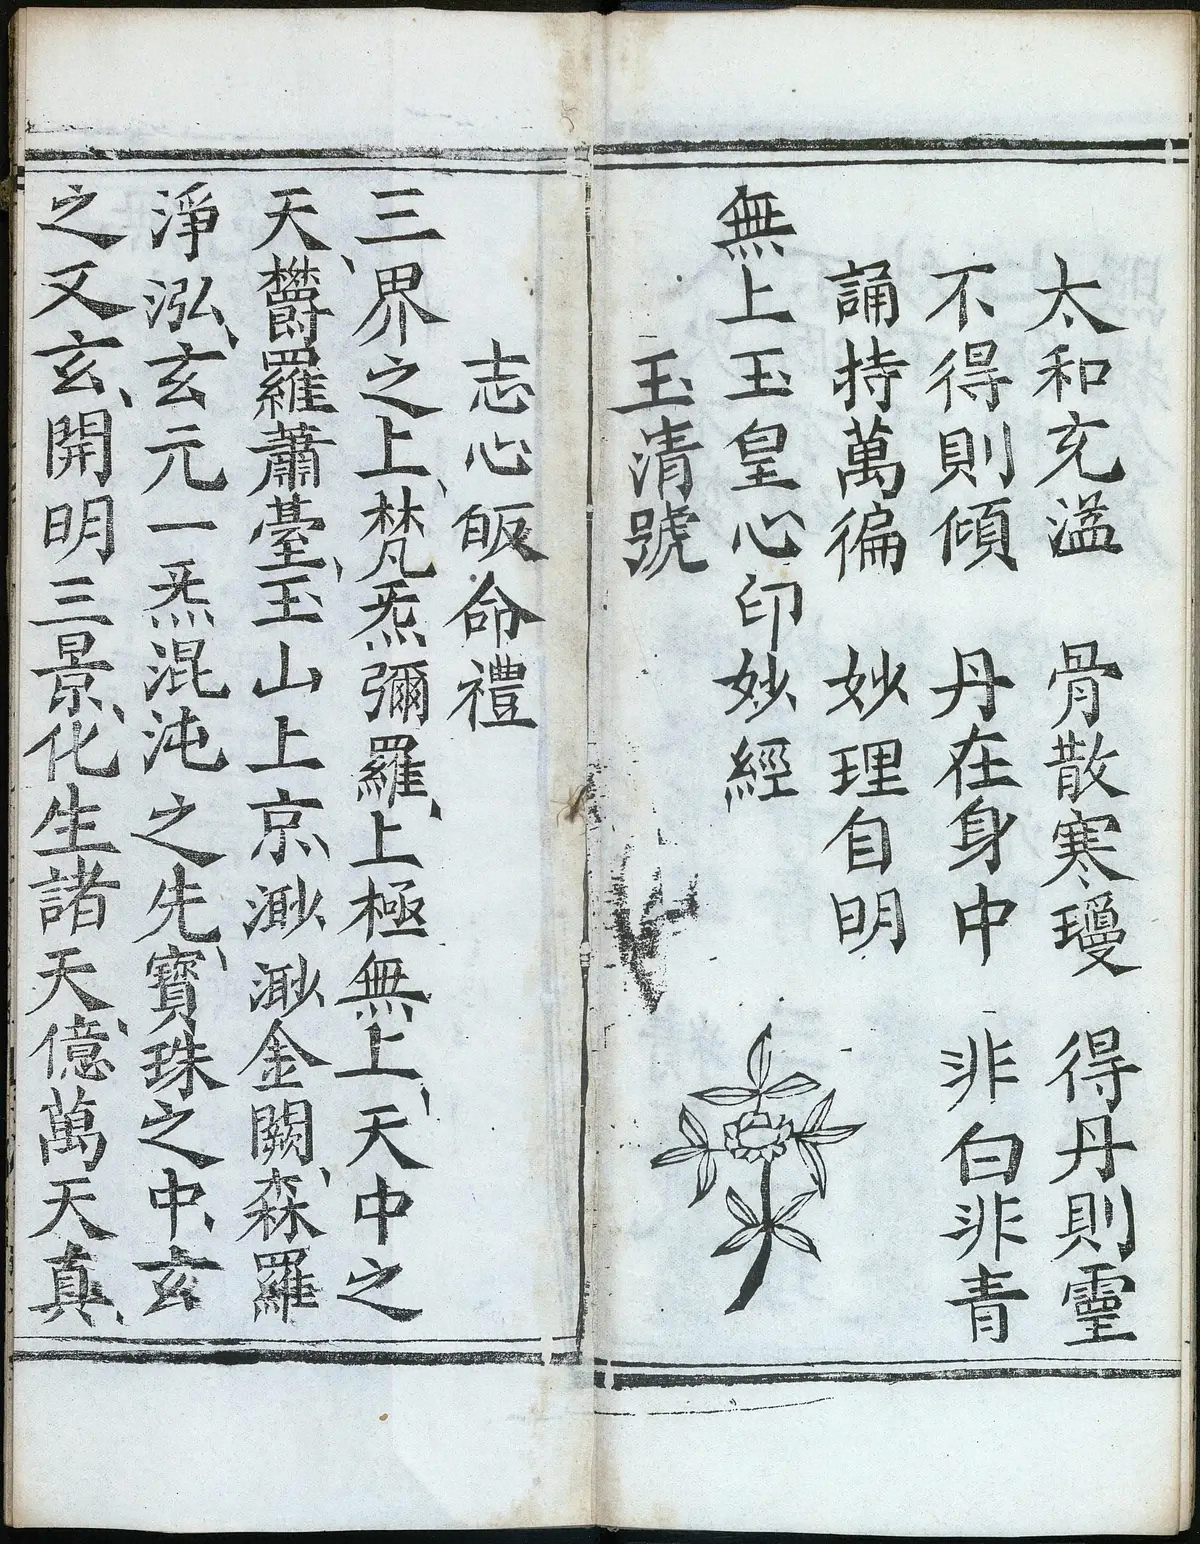 太和充溢　骨散寒瓊　得丹則靈
不得則傾　丹在身中　非白非青
誦持萬徧　妙理自明
無上玉皇心印妙經
玉清號
志心皈命禮
三界之上、梵炁彌羅、上極無上、天中之
天、欝羅蕭臺、玉山上京、渺渺金闕、森羅
淨泓、玄元一炁混沌之先、寶珠之中、玄
之又玄、開明三景、化生諸天、億萬天真、